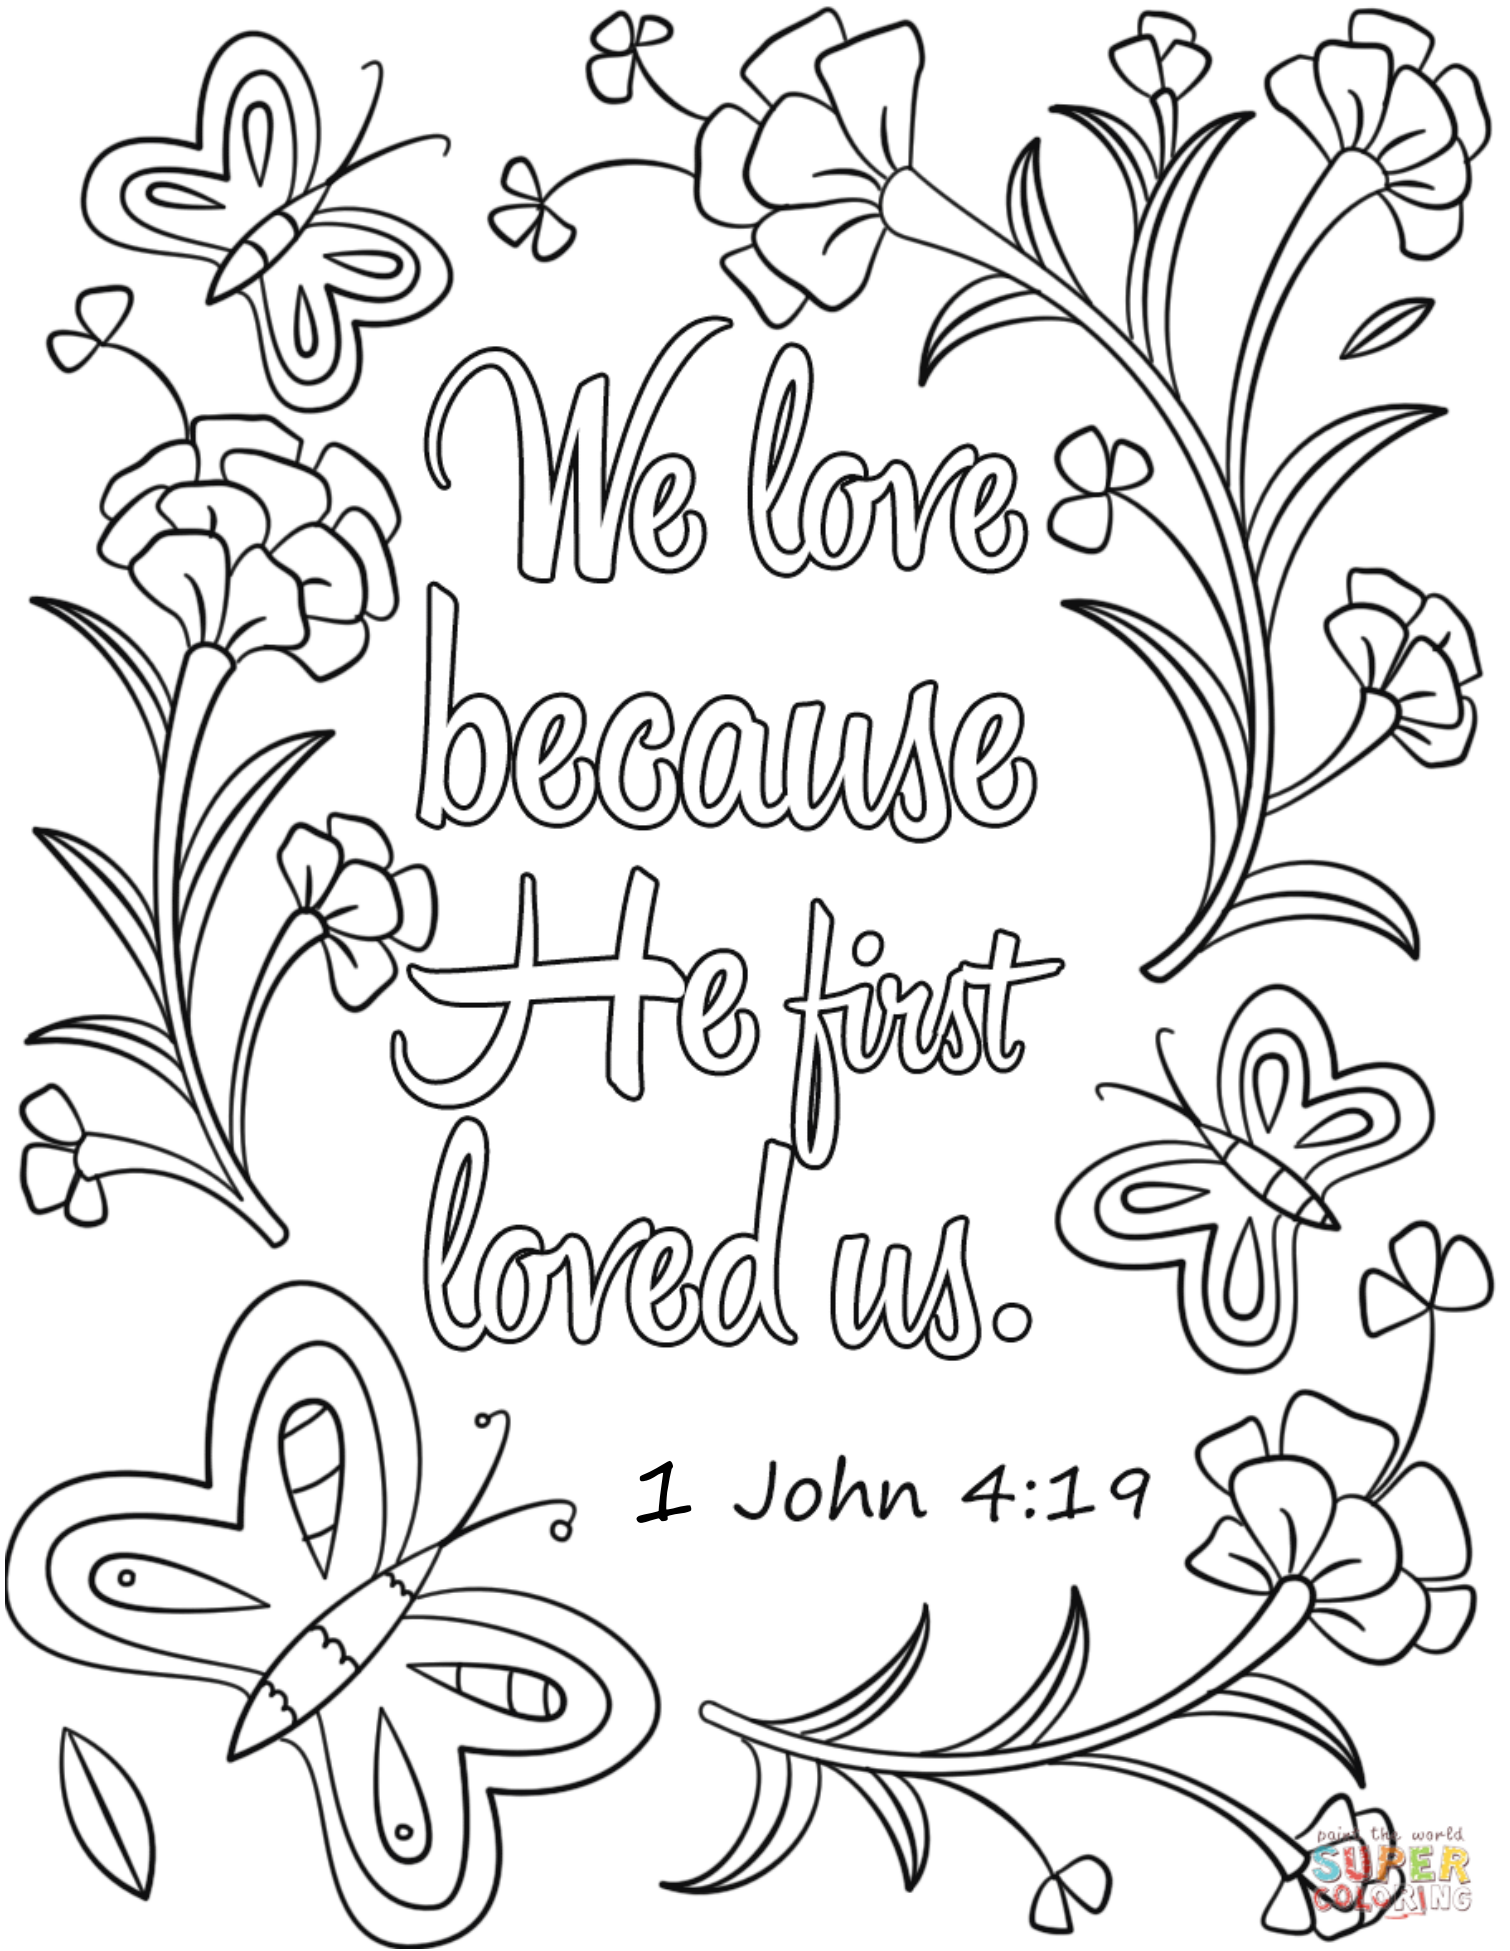 We love
because
He first
loved us.
1 John 4:19
paint the world
SUPER
COLORING